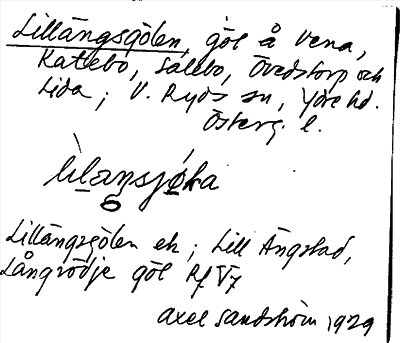 Lillängsgölen, göl å Vena,
Kattebo, Sälebo, Övedstorp och
Lida; V. Ryds sn, Ydre hd.
Österg. l.
lilaŋsjöka
Lillängsgölen ek; Lill Ängstad,
Långrödje göl Rf V7
Axel Sandström 1929